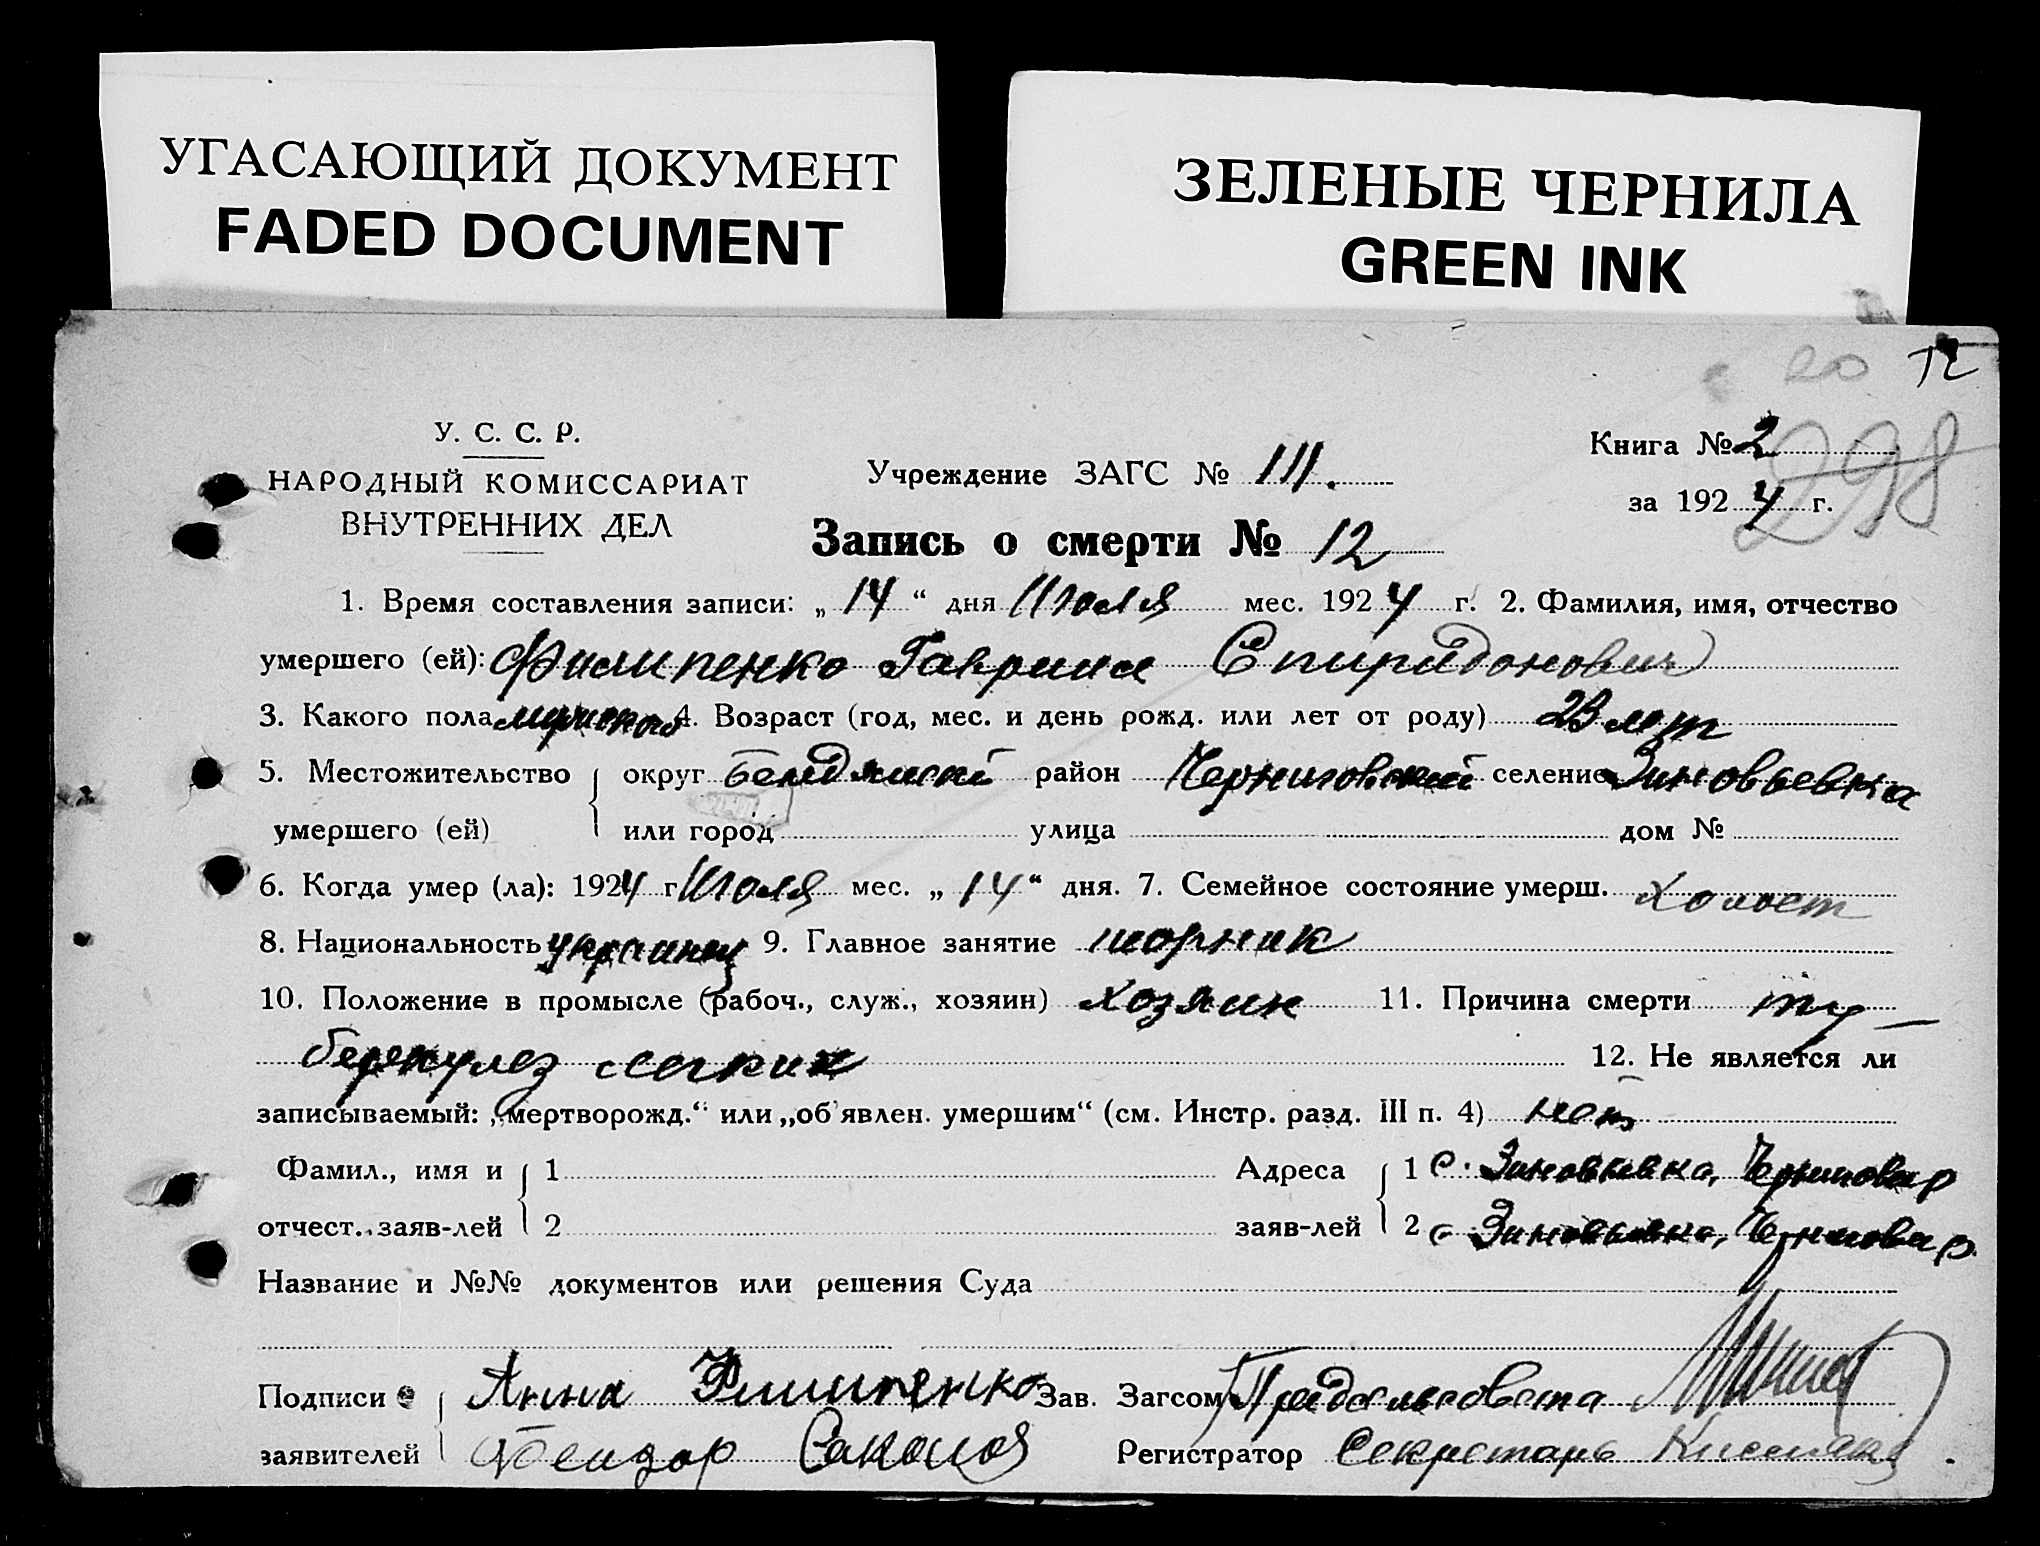 УГАСАЮЩИЙ ДОКУМЕНТ
FADED DOCUMENT
ЗЕЛЕНЫЕ ЧЕРНИЛА
GREEN INK
20 12
298
У. С. С. Р.
НАРОДНЫЙ КОМИССАРИАТ
ВНУТРЕННИХ ДЕЛ
Учреждение ЗАГС № III.
Книга № 2
за 1924 г.
Запись о смерти № 12
1. Время составления записи: „14“ дня Июля мес. 1924 г. 2. Фамилия, имя, отчество
умершего (ей): Филипенко Гаврил Спиридонович
3. Какого пола мужского 4. Возраст (год, мес. и день рожд. или лет от роду) 23 лет
5. Местожительство округ район Черниговский селение Зиновьевка
умершего (ей) или город улица дом №
6. Когда умер (ла): 1924 г. Июля мес. „14“ дня. 7. Семейное состояние умерш. холост
8. Национальность украинец 9. Главное занятие шорник
10. Положение в промысле (рабоч., служ., хозяин) хозяин 11. Причина смерти ту-
беркулез легких 12. Не является ли
записываемый: „мертворожд.“ или „об'явлен. умершим“ (см. Инстр. разд. III п. 4) нет
Фамил., имя и 1 Адреса 1 с. Зиновьевка, Черниговск р
отчест. заяв-лей 2 заяв-лей 2 с Зиновьевка, Черниговск р.
Название и №№ документов или решения Суда
Подписи Анна Филипенко Зав. Загсом Предсельсовета
заявителей Соколов Регистратор Секретарь